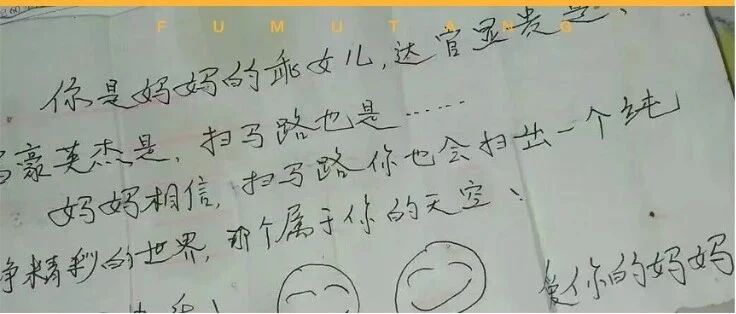 FUMUTANG
你是妈妈的乖女儿,达官显贵是、
豪英杰是,扫马路也是……
妈妈相信,扫马路你也会扫出一个纯
净精彩的世界,那个属于你的天空、
爱你的妈妈